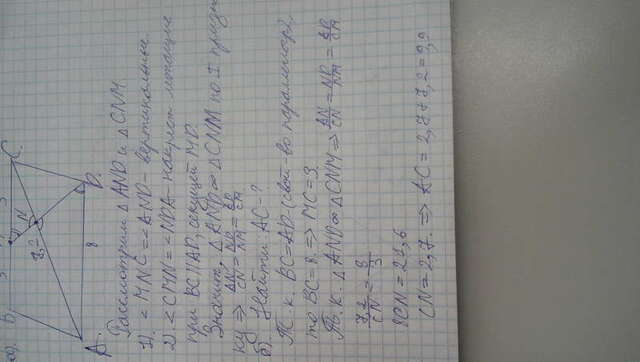 а).
B
3
3
C
N
7,2
A
8
D.
Рассмотрим △AND и △CNM
1). <MNC = <AND - вертикальные
2). <CMN = <NDA - накрест лежащие
при BC||AD, секущей MD.
Значит, △AND ∞ △CNM по I призна
ку ⇒ AN/CN = ND/NM = AD/CM
б) Найти: AC - ?
Т. к. BC = AD (свой-во параллогр),
то BC = 8. ⇒ MC = 3.
Т. к. △AND ∞ △CNM ⇒ AN/CN = ND/NM = AD/CM
7,2/CN = 8/3
8CN = 21,6
CN = 2,7. ⇒ AC = 2,7 + 7,2 = 9,9